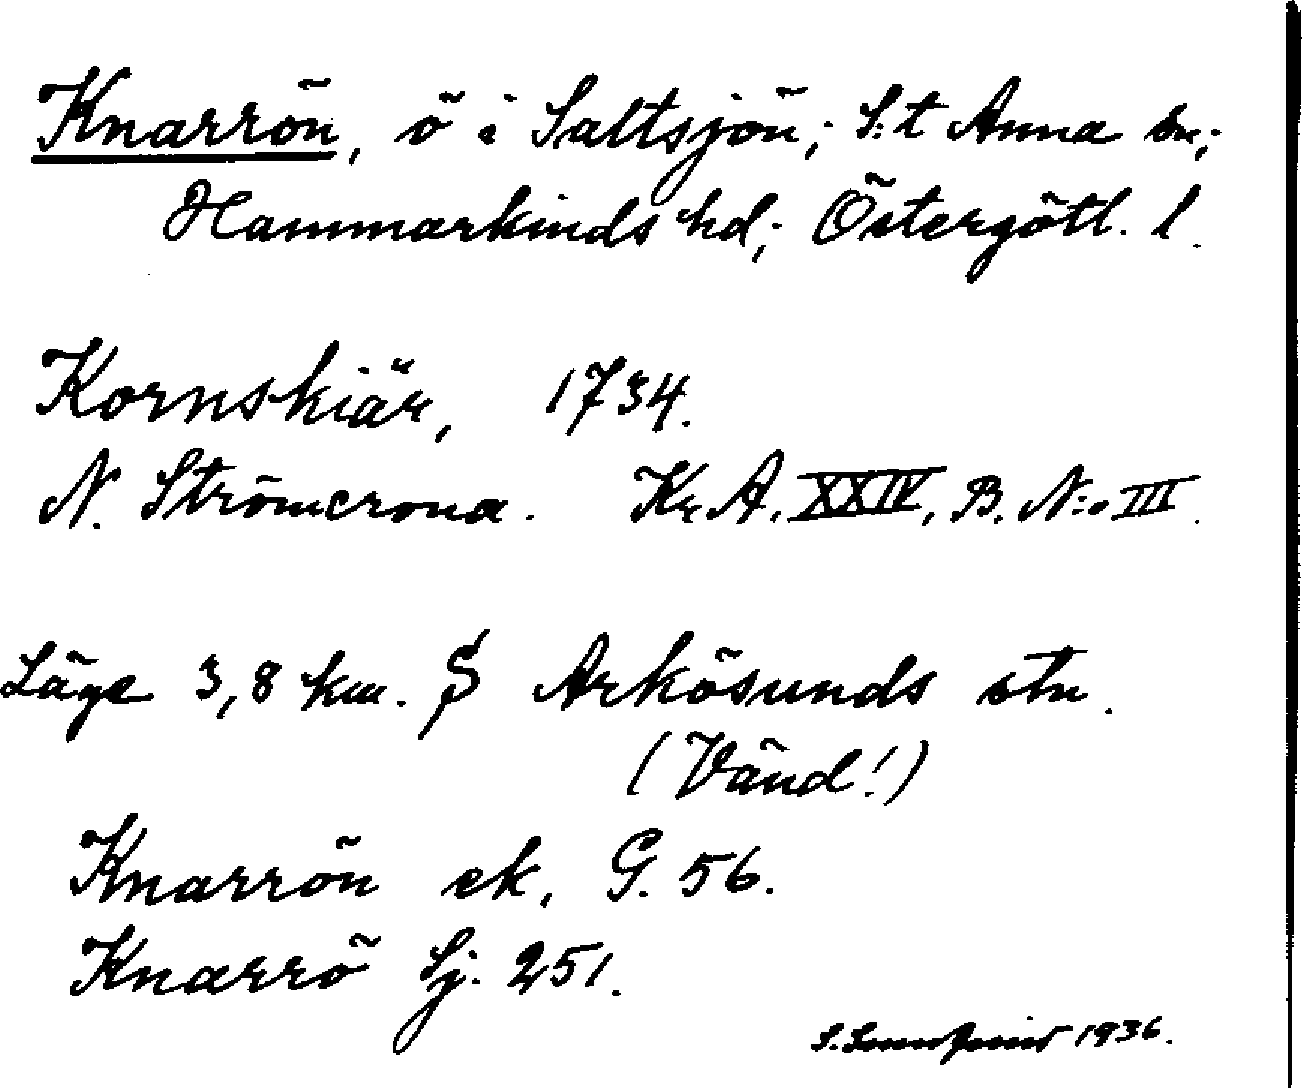 Knarrön, ö i Saltsjön; S:t Anna sn;
Hammarkinds hd; Östergötl. l.
Kornskiär, 1734.
N. Strömcrona. Kr. A. XXIV, B. N:o III.
Läge 3,8 km. S Arkösunds stn.
(Vänd!)
Knarrön ek. G. 56.
Knarrö Sj. 251.
S. 1936.